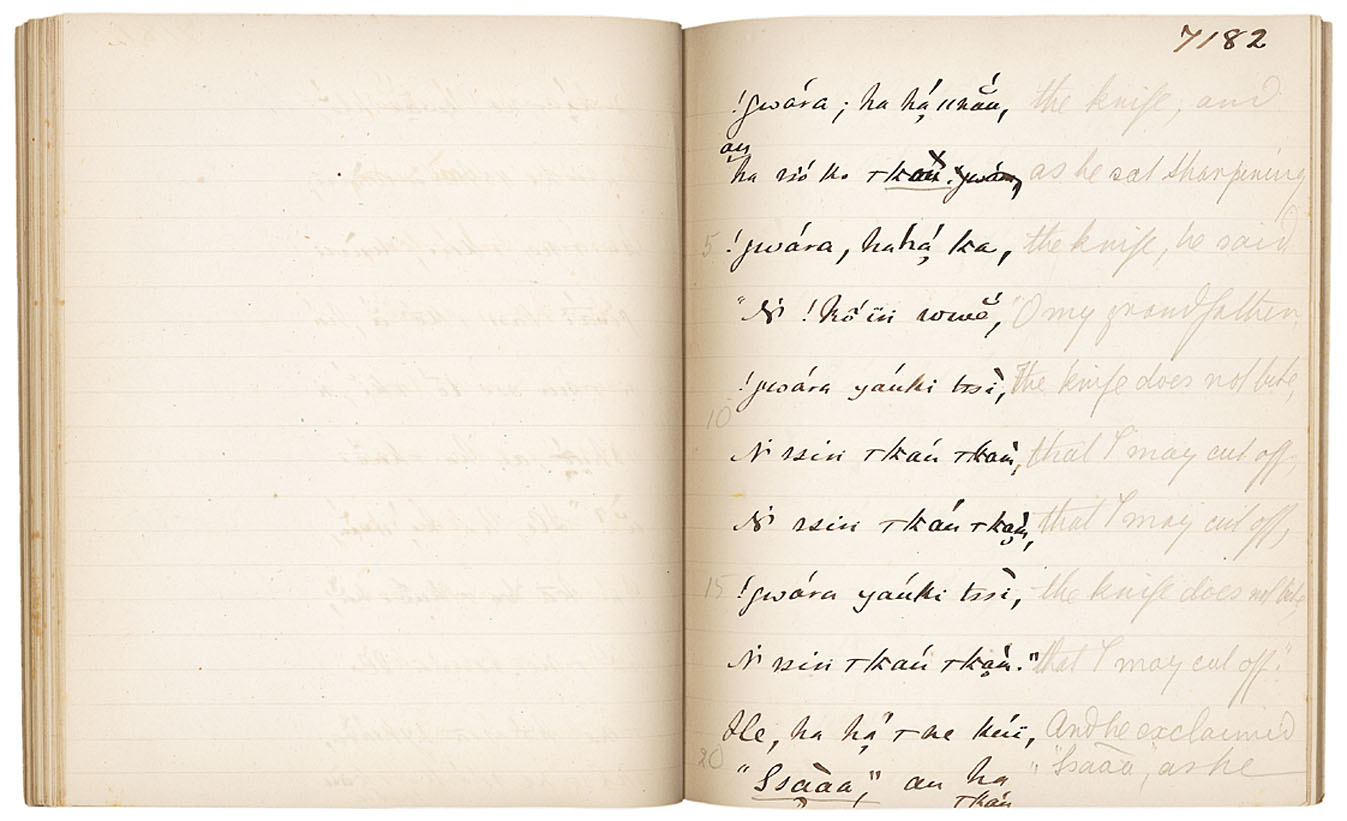 7182
!gwára; ha há̤ ǁnăǔ, the knife, and
an
ha ssó ko ꞇkáù !gwára, as he sat sharpening
5 !gwára, hahá̤ ka, the knife, he said
"Ń !kŏ́ïn wwĕ́, "O my grandfather,
!gwára yáuki tssì, The knife does not bite,
10
Ń ssin ꞇkáu ꞇkaù, that I may cut off,
Ń ssin ꞇkáu ꞇka̤ù, that I may cut off,
15 !gwára yáuki tssì, the knife does not bite,
Ń ssin ꞇkáu ꞇka̤ù." that I may cut off."
He, ha há̤ ꞇne kúï, And he exclaimed
20 "Ssàaa," au ha "Ssàaa", as he
ꞇkáu